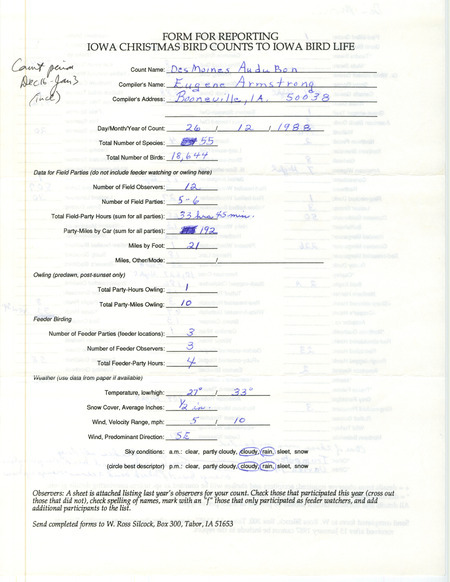 FORM FOR REPORTING
IOWA CHRISTMAS BIRD COUNTS TO IOWA BIRD LIFE
Count period
Dec 16 - Jan 3
(incl)
Count Name: Des Moines Audubon
Compiler's Name: Eugene Armstrong
Compiler's Address: Booneville, IA. 50038
Day/Month/Year of Count: 26 / 12 / 1988
Total Number of Species: 55
Total Number of Birds: 18,644
Data for Field Parties (do not include feeder watching or owling here)
Number of Field Observers: 12
Number of Field Parties: 5-6
Total Field-Party Hours (sum for all parties): 33 hrs 45 min.
Party-Miles by Car (sum for all parties): 192
Miles by Foot: 21
Miles, Other/Mode: /
Owling (predawn, post-sunset only)
Total Party-Hours Owling: 1
Total Party-Miles Owling: 10
Feeder Birding
Number of Feeder Parties (feeder locations): 3
Number of Feeder Observers: 3
Total Feeder-Party Hours: 4
Weather (use data from paper if available)
Temperature, low/high: 27° / 33°
Snow Cover, Average Inches: 1/2 in.
Wind, Velocity Range, mph: 5 / 10
Wind, Predominant Direction: SE
Sky conditions: a.m.: clear, partly cloudy, cloudy, rain, sleet, snow
(circle best descriptor) p.m.: clear, partly cloudy, cloudy, rain, sleet, snow
Observers: A sheet is attached listing last year's observers for your count. Check those that participated this year (cross out
those that did not), check spelling of names, mark with an "f" those that only participated as feeder watchers, and add
additional participants to the list.
Send completed forms to W. Ross Silcock, Box 300, Tabor, IA 51653